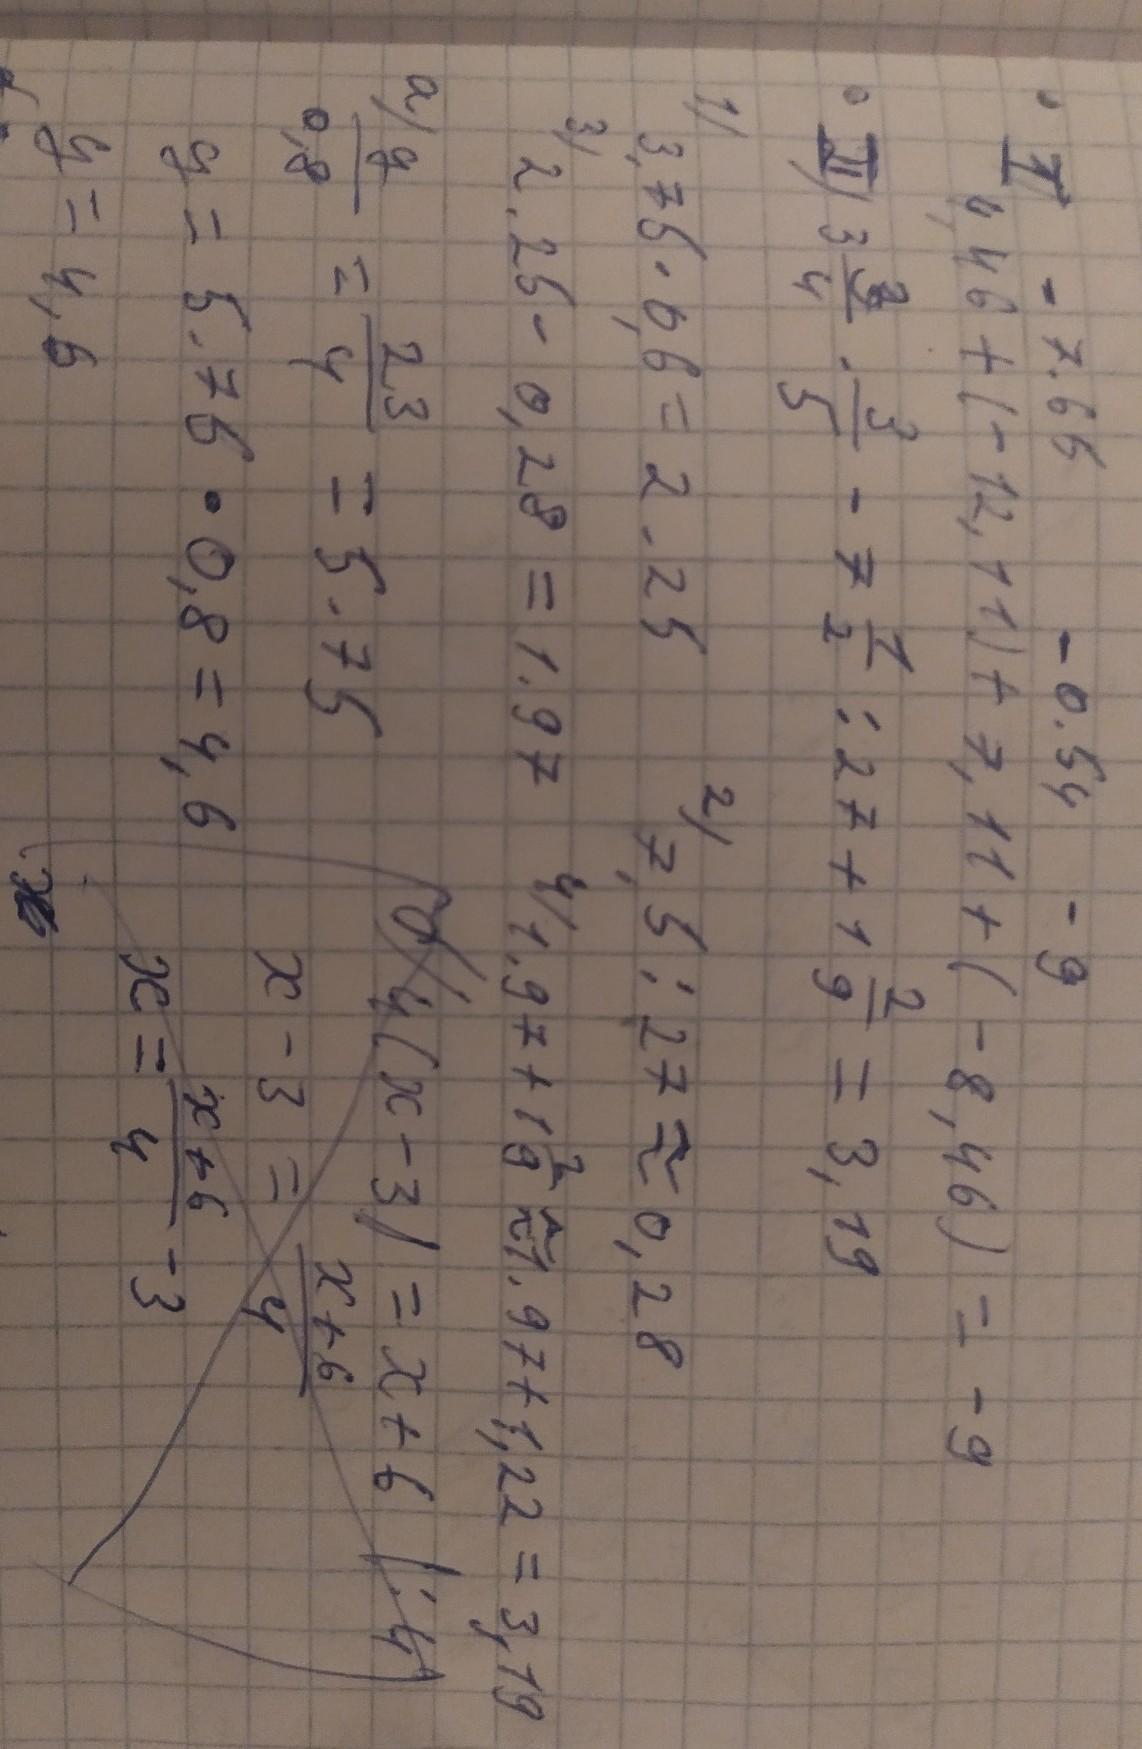 -7.66 -0.54 -9
I) 4,46+(-12,11)+7,11+(-8,46) = -9
II) 3 3/4 · 3/5 - 7 1/2 : 27 + 1 2/9 = 3,19
1) 3,75·0,6=2.25 2) 7,5:27≈0,28
3) 2.25-0,28=1.97 4) 1.97+1 2/9≈1.97+1,22=3,19
a) y/0,8 = 23/4 = 5.75 б) 4(x-3)=x+6 |:4
x-3 = x+6/4
y = 5.75·0,8=4,6
x = x+6/4 -3
y = 4,6